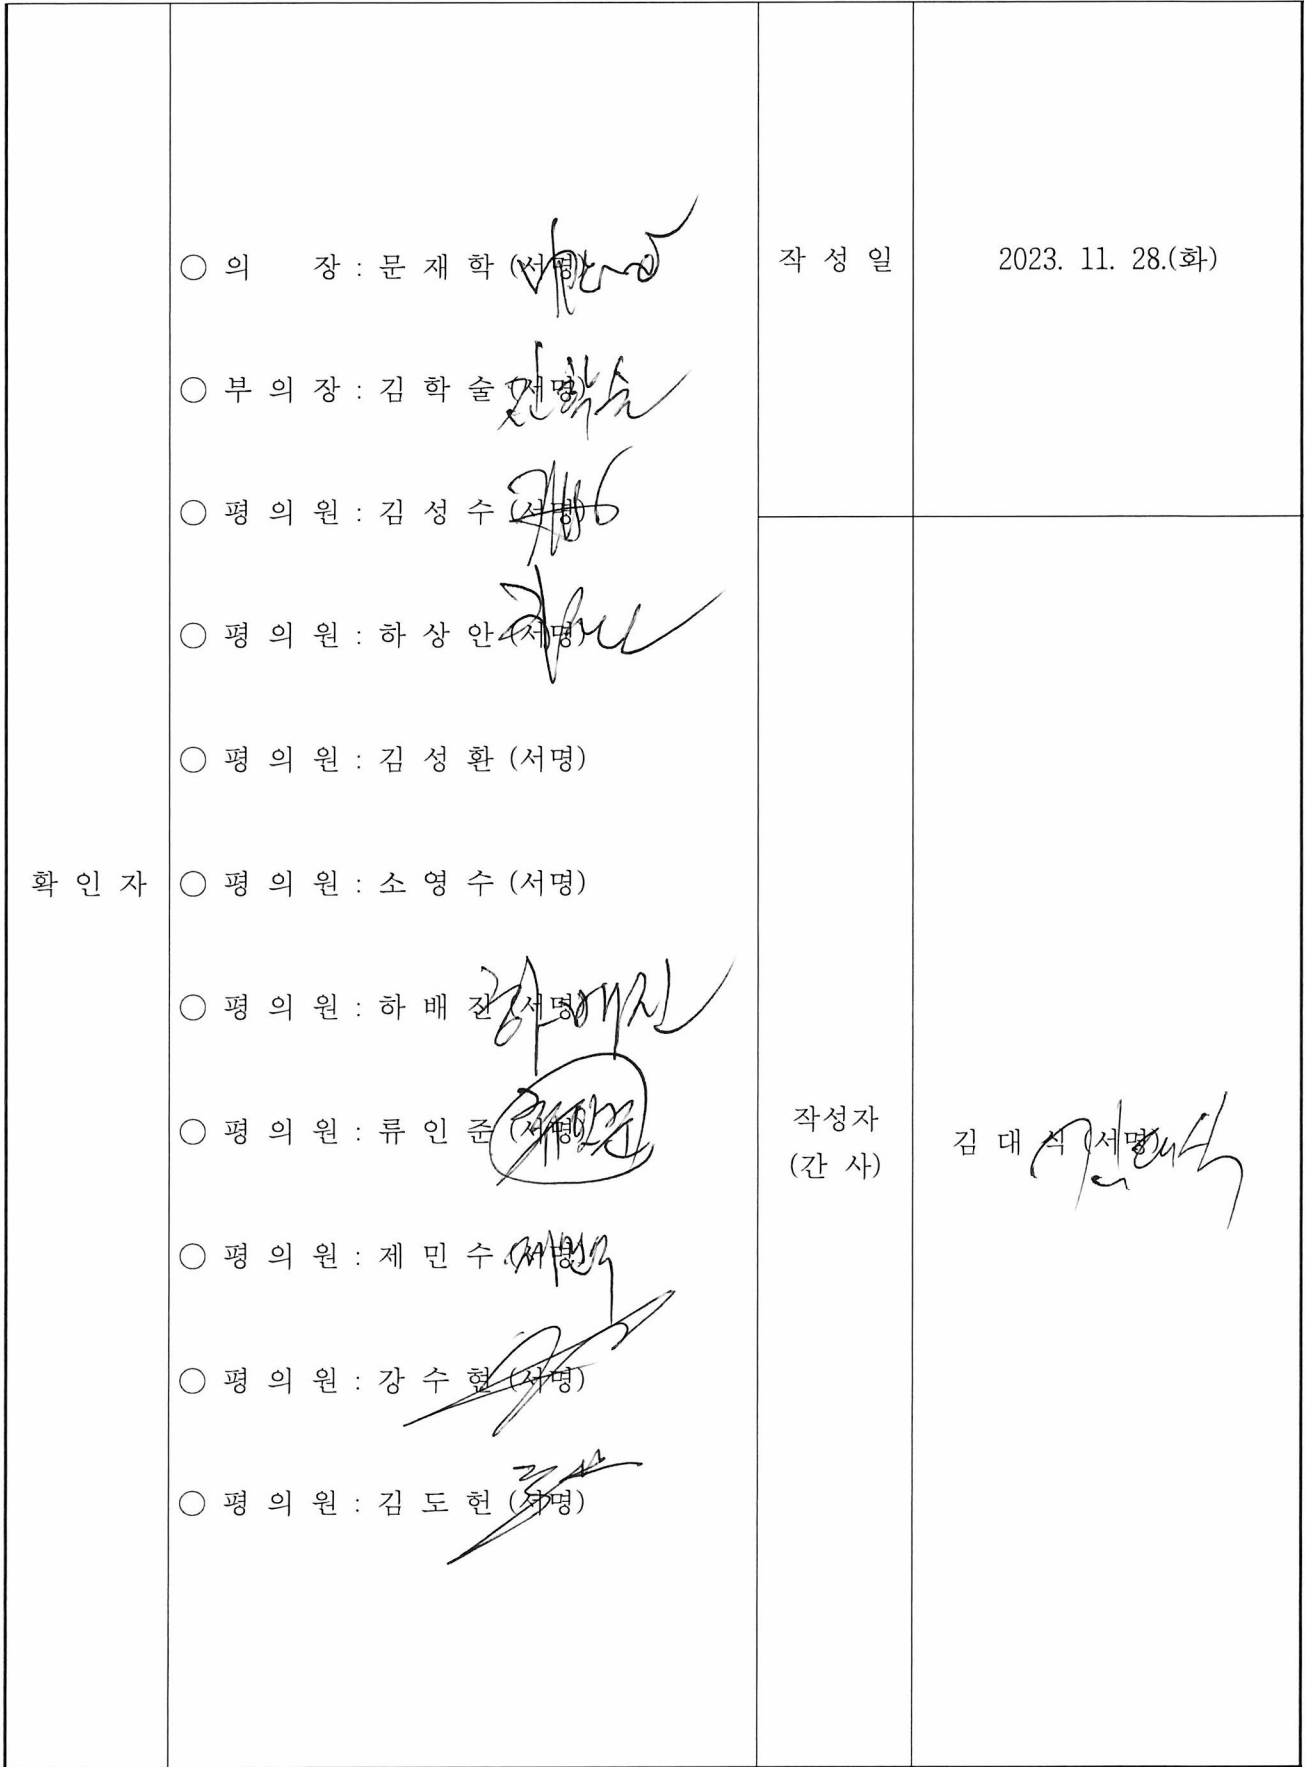 ○ 의 장 : 문 재 학 (서명)
○ 부 의 장 : 김 학 술 (서명)
○ 평 의 원 : 김 성 수 (서명)
○ 평 의 원 : 하 상 안 (서명)
○ 평 의 원 : 김 성 환 (서명)
확 인 자
○ 평 의 원 : 소 영 수 (서명)
○ 평 의 원 : 하 배 진 (서명)
하배진
○ 평 의 원 : 류 인 준 (서명)
○ 평 의 원 : 제 민 수 (서명)
○ 평 의 원 : 강 수 현 (서명)
○ 평 의 원 : 김 도 헌 (서명)
작 성 일
2023. 11. 28.(화)
작성자
(간 사)
김 대 식 (서명)